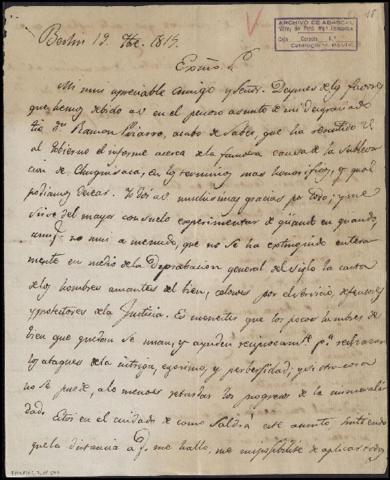 ARCHIVO DE ABASCAL
Virrey del Perú, Mar
Caja Carpeta N.º
Berlin 19. 1815.
Exmõ. Sr.
Mi mui apreciable Amigo y Señor. Despues de los favores
que hemos debido a V. en el penoso asunto de mi desgraciado
tio Dn. Ramon Pizarro, acabo de saber, que ha remitido V.
al Gobierno el informe acerca de la famosa causa de la subleva
cion de Chuquisaca, en los terminos mas honorificos, y qual
podiamos desear. Doi a V. muchisimas gracias por todo; y me
sirve del mayor consuelo experimentar de quando en quando,
aunq.e no mui a menudo, que no se ha extinguido entera
mente en medio de la Depravacion general del siglo la casta
de los hombres amantes del bien, celosos por el servicio, defensores
y protectores de la Justicia. Es menester que los pocos hombres de
bien que quedan se unan, y ayuden reciprocam.te p.a rechazar
los ataques de la intriga, egoismo, y perversidad; y si otra cosa
no se puede, a lo menos retardar los progresos de la inmorali
dad. Estoi en el cuidado de como saldrá este asunto sintiendo
que la distancia a q.e me hallo, me imposibilite de aplicar todos